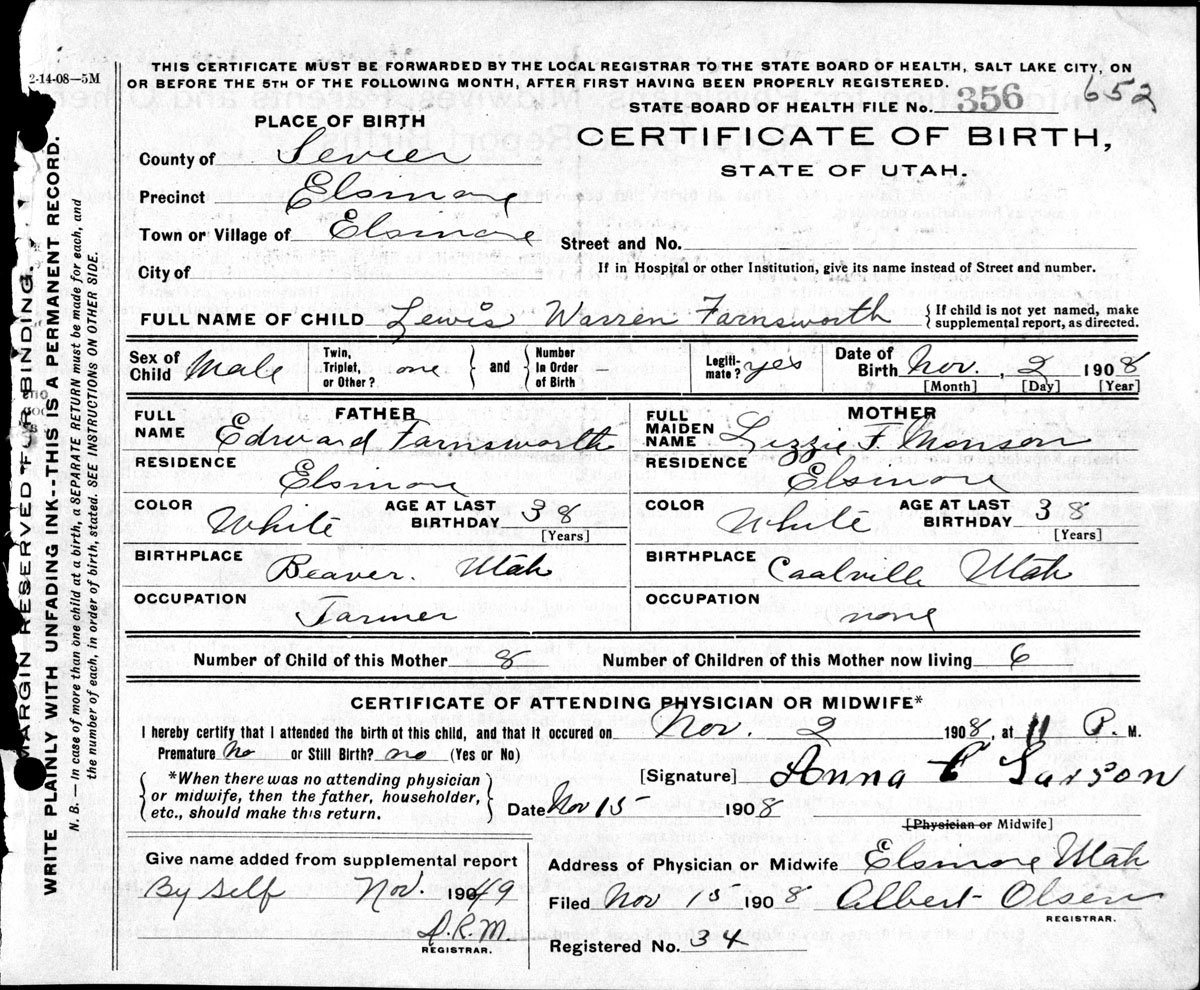 2-14-08—5M
THIS CERTIFICATE MUST BE FORWARDED BY THE LOCAL REGISTRAR TO THE STATE BOARD OF HEALTH, SALT LAKE CITY, ON
OR BEFORE THE 5TH OF THE FOLLOWING MONTH, AFTER FIRST HAVING BEEN PROPERLY REGISTERED.
652
STATE BOARD OF HEALTH FILE No. 356
PLACE OF BIRTH
CERTIFICATE OF BIRTH,
STATE OF UTAH.
County of Sevier
Precinct Elsinore
Town or Village of Elsinore
Street and No.
City of
If in Hospital or other Institution, give its name instead of Street and number.
FULL NAME OF CHILD Lewis Warren Farnsworth
{If child is not yet named, make
supplemental report, as directed.
Sex of Child Male
Twin, Triplet, or Other? one } and { Number In Order of Birth
Legiti-mate? yes
Date of Birth Nov., 2 1908
[Month] [Day] [Year]
FATHER
FULL NAME Edward Farnsworth
RESIDENCE
Elsinore
COLOR White
AGE AT LAST BIRTHDAY 38
[Years]
BIRTHPLACE
Beaver. Utah
OCCUPATION
Farmer
MOTHER
FULL MAIDEN NAME Lizzie F. Monson
RESIDENCE
Elsinore
COLOR White
AGE AT LAST BIRTHDAY 38
[Years]
BIRTHPLACE
Coalville Utah
OCCUPATION
none
Number of Child of this Mother 8
Number of Children of this Mother now living 6
CERTIFICATE OF ATTENDING PHYSICIAN OR MIDWIFE*
I hereby certify that I attended the birth of this child, and that it occured on Nov. 2 1908, at 11 P. M.
Premature No or Still Birth? no (Yes or No)
{*When there was no attending physician
or midwife, then the father, householder,
etc., should make this return.}
[Signature] Anna C Larson
Date Nov 15 1908
[Physician or Midwife]
Give name added from supplemental report
By Self Nov 1949
A.R.M.
REGISTRAR.
Address of Physician or Midwife Elsinore Utah
Filed Nov 15 1908 Albert Olsen
REGISTRAR.
Registered No. 34
MARGIN RESERVED FOR BINDING.
WRITE PLAINLY WITH UNFADING INK--THIS IS A PERMANENT RECORD.
N. B.—In case of more than one child at a birth, a SEPARATE RETURN must be made for each, and
the number of each, in order of birth, stated. SEE INSTRUCTIONS ON OTHER SIDE.